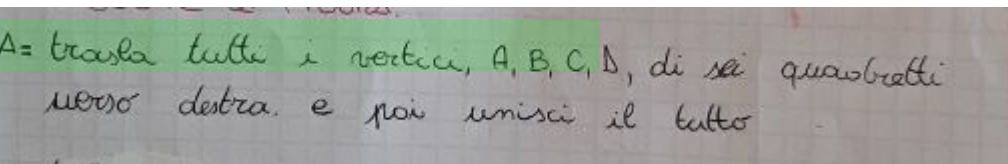 A= trasla tutti i vertici, A, B, C, D, di sei quadretti
verso destra. e poi unisci il tutto